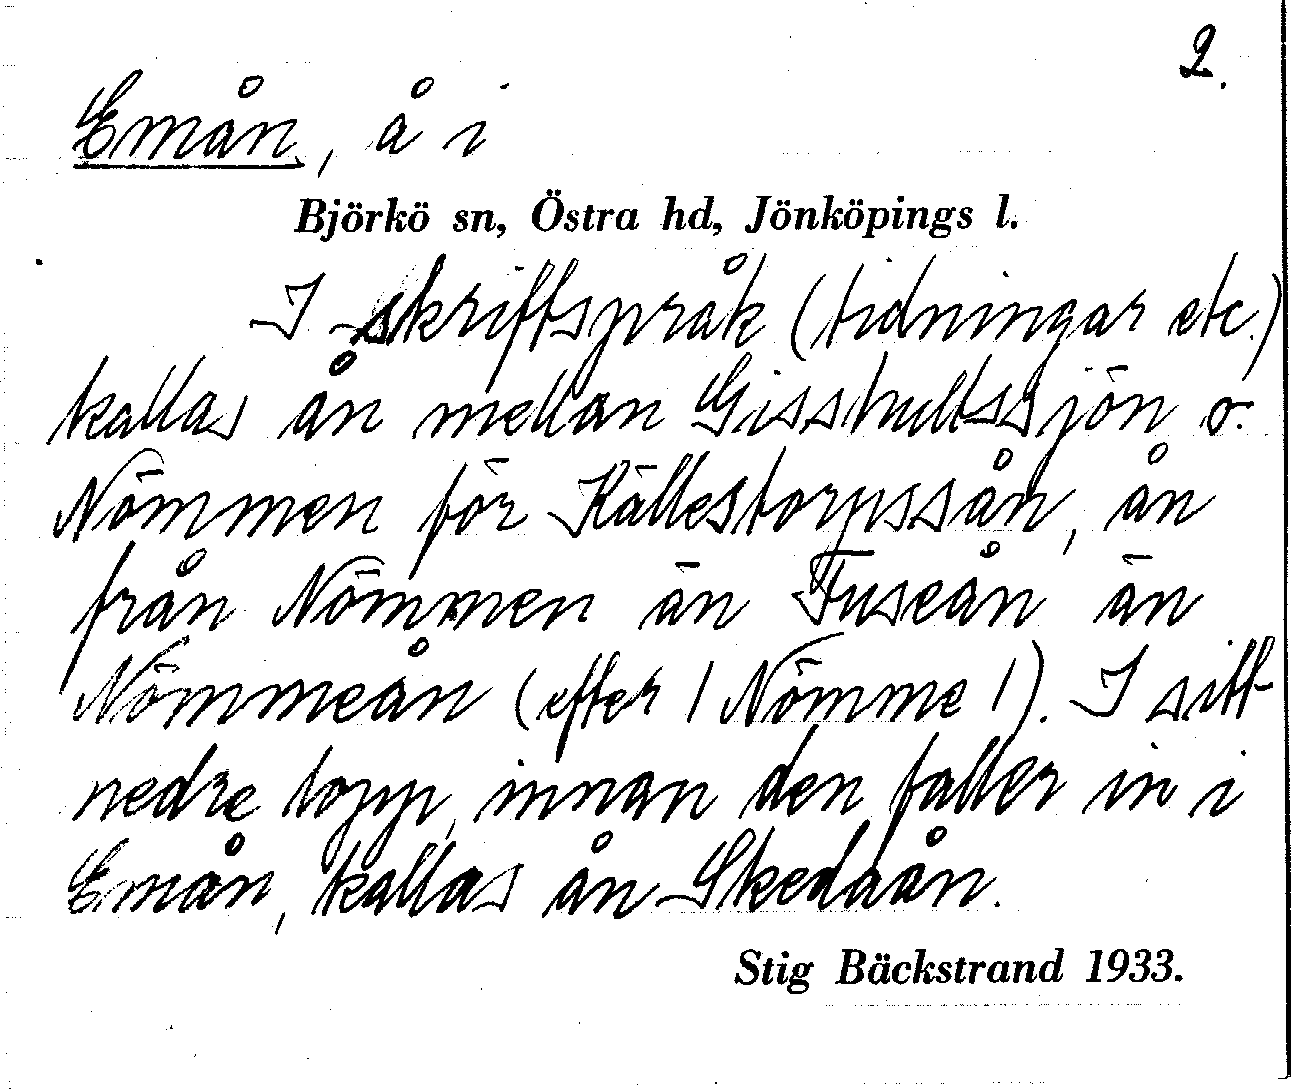 2.
Emån, å i
Björkö sn, Östra hd, Jönköpings l.
I skriftspråk (tidningar etc.)
kallas ån mellan Gisshultssjön o.
Nömmen för Källestorpssån, ån
från Nömmen än Fuseån än
Nömmeån (efter / Nömme /). I sitt
nedre lopp, innan den faller in i
Emån, kallas ån Skedaån.
Stig Bäckstrand 1933.